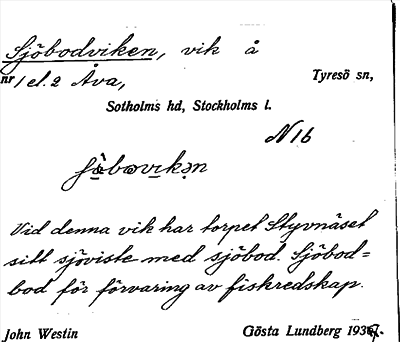 Sjöbodviken, vik å
nr 1 el. 2 Åva, Tyresö sn,
Sotholms hd, Stockholms l.
N 16
Vid denna vik har torpet Styvnäset
sitt sjöviste med sjöbod. Sjöbod=
bod för förvaring av fiskredskap.
John Westin Gösta Lundberg 1937.